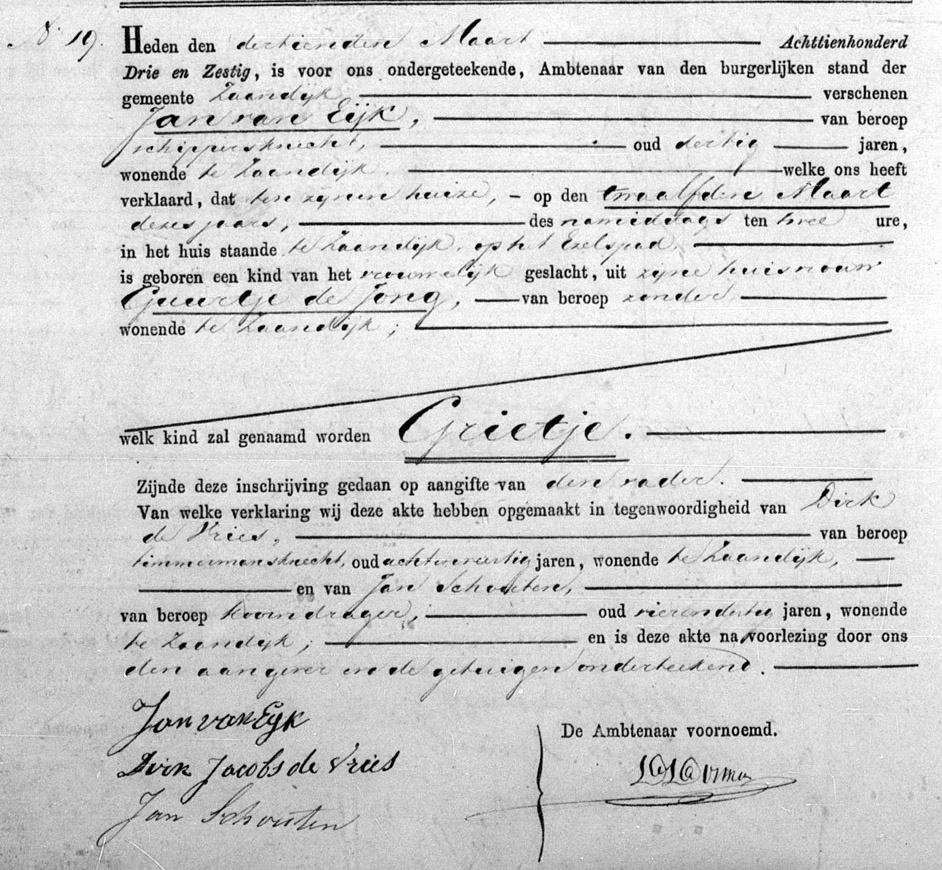 N° 19.
Heden den dertienden Maart Achttienhonderd
Drie en Zestig, is voor ons ondergeteekende, Ambtenaar van den burgerlijken stand der
gemeente Zaandijk verschenen
Jan van Eijk, van beroep
schippersknecht, oud dertig jaren,
wonende te Zaandijk. welke ons heeft
verklaard, dat ten zijnen huize, – op den twaalfden Maart
dezes jaars, des namiddags ten twee ure,
in het huis staande te Zaandijk, op het Ezelspad.
is geboren een kind van het vrouwelijk geslacht, uit zijne huisvrouw
Guurtje de Jong, van beroep zonder
wonende te Zaandijk;
welk kind zal genaamd worden Grietje.
Zijnde deze inschrijving gedaan op aangifte van den vader.
Van welke verklaring wij deze akte hebben opgemaakt in tegenwoordigheid van Dirk
de Vries, van beroep
timmermansknecht, oud achtenveertig jaren, wonende te Zaandijk,
en van Jan Schouten,
van beroep koorndrager, oud vierendertig jaren, wonende
te Zaandijk; en is deze akte na voorlezing door ons
den aangever en de getuigen onderteekend.
Jan van Eyk
Dirk Jacobs de Vries
Jan Schouten
De Ambtenaar voornoemd.